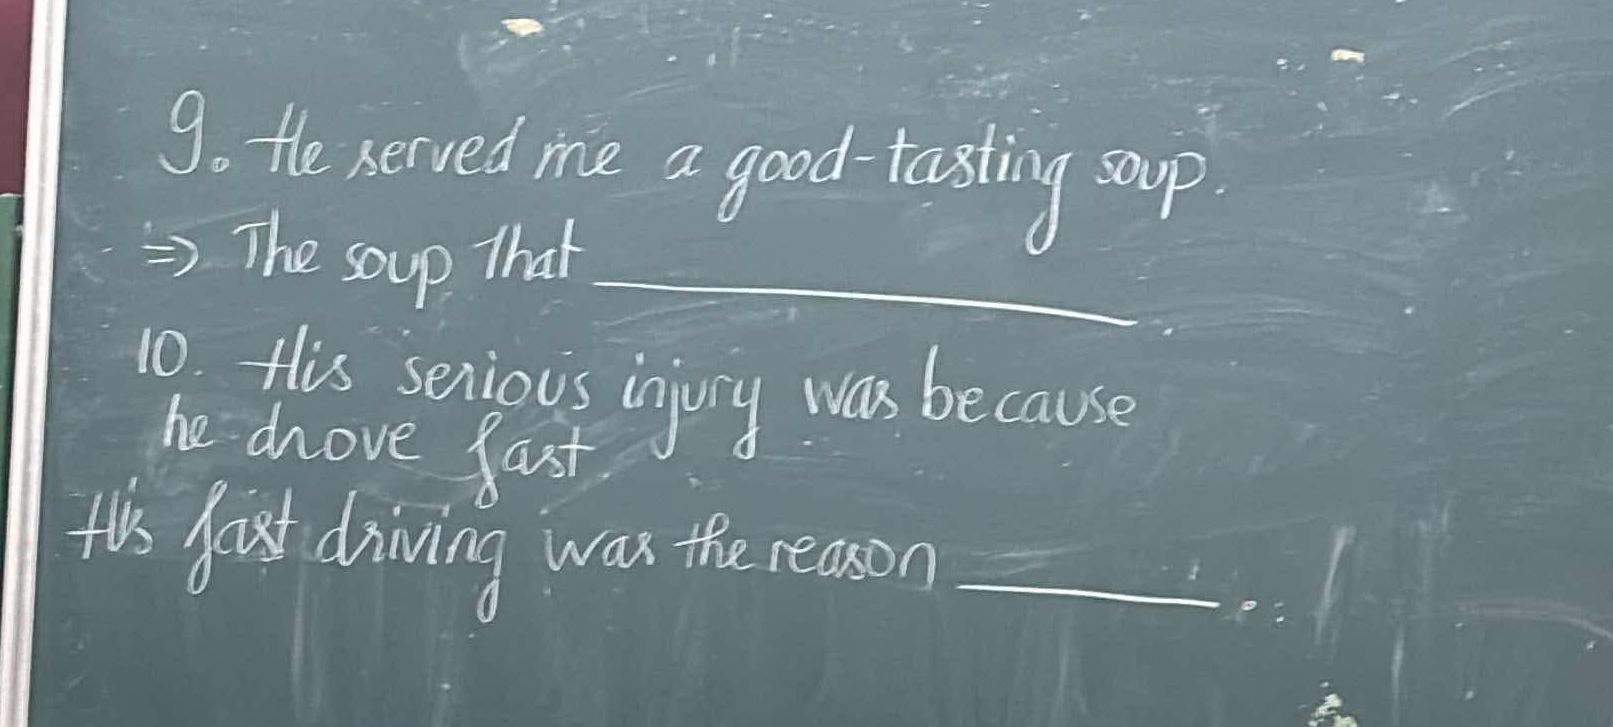 9. He served me a good-tasting soup.
=> The soup that ______.
10. His serious injury was because
he drove fast
His fast driving was the reason ______.